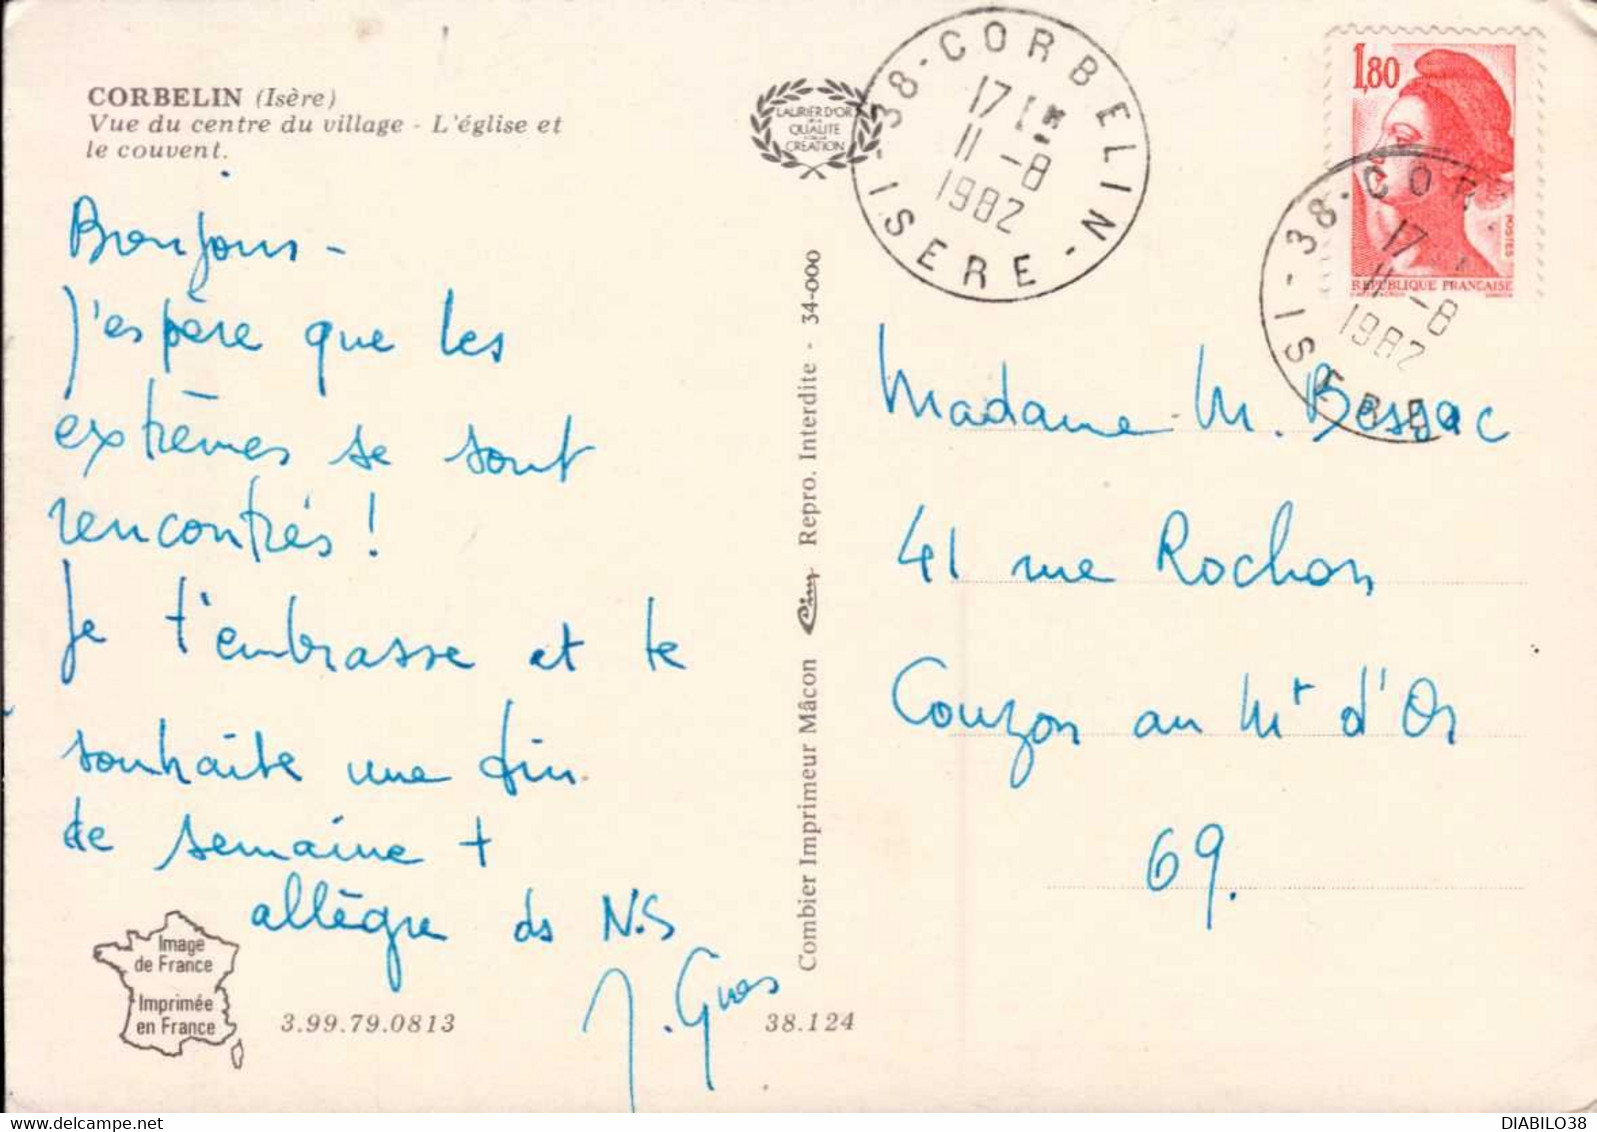 CORBELIN (Isère)
Vue du centre du village - L'église et
le couvent.
Bonjour -
J'espère que les
extrêmes se sont
rencontrés !
Je t'embrasse et te
souhaite une fin
de semaine +
allègre ds N.S
Image
de France
Imprimée
en France
3.99.79.0813
38.124
LAURIER D'OR
QUALITE
CREATION
Combier Imprimeur Mâcon Cim Repro. Interdite - 34-000
38 - CORBELIN
17 H
11 - 8
1982
ISERE
1,80
POSTES
REPUBLIQUE FRANCAISE
38 - COR
17
11 - 8
1982
ISERE
Madame M. Bessac
41 rue Rochon
Couzon au Mt d'Or
69.
DIABILO38